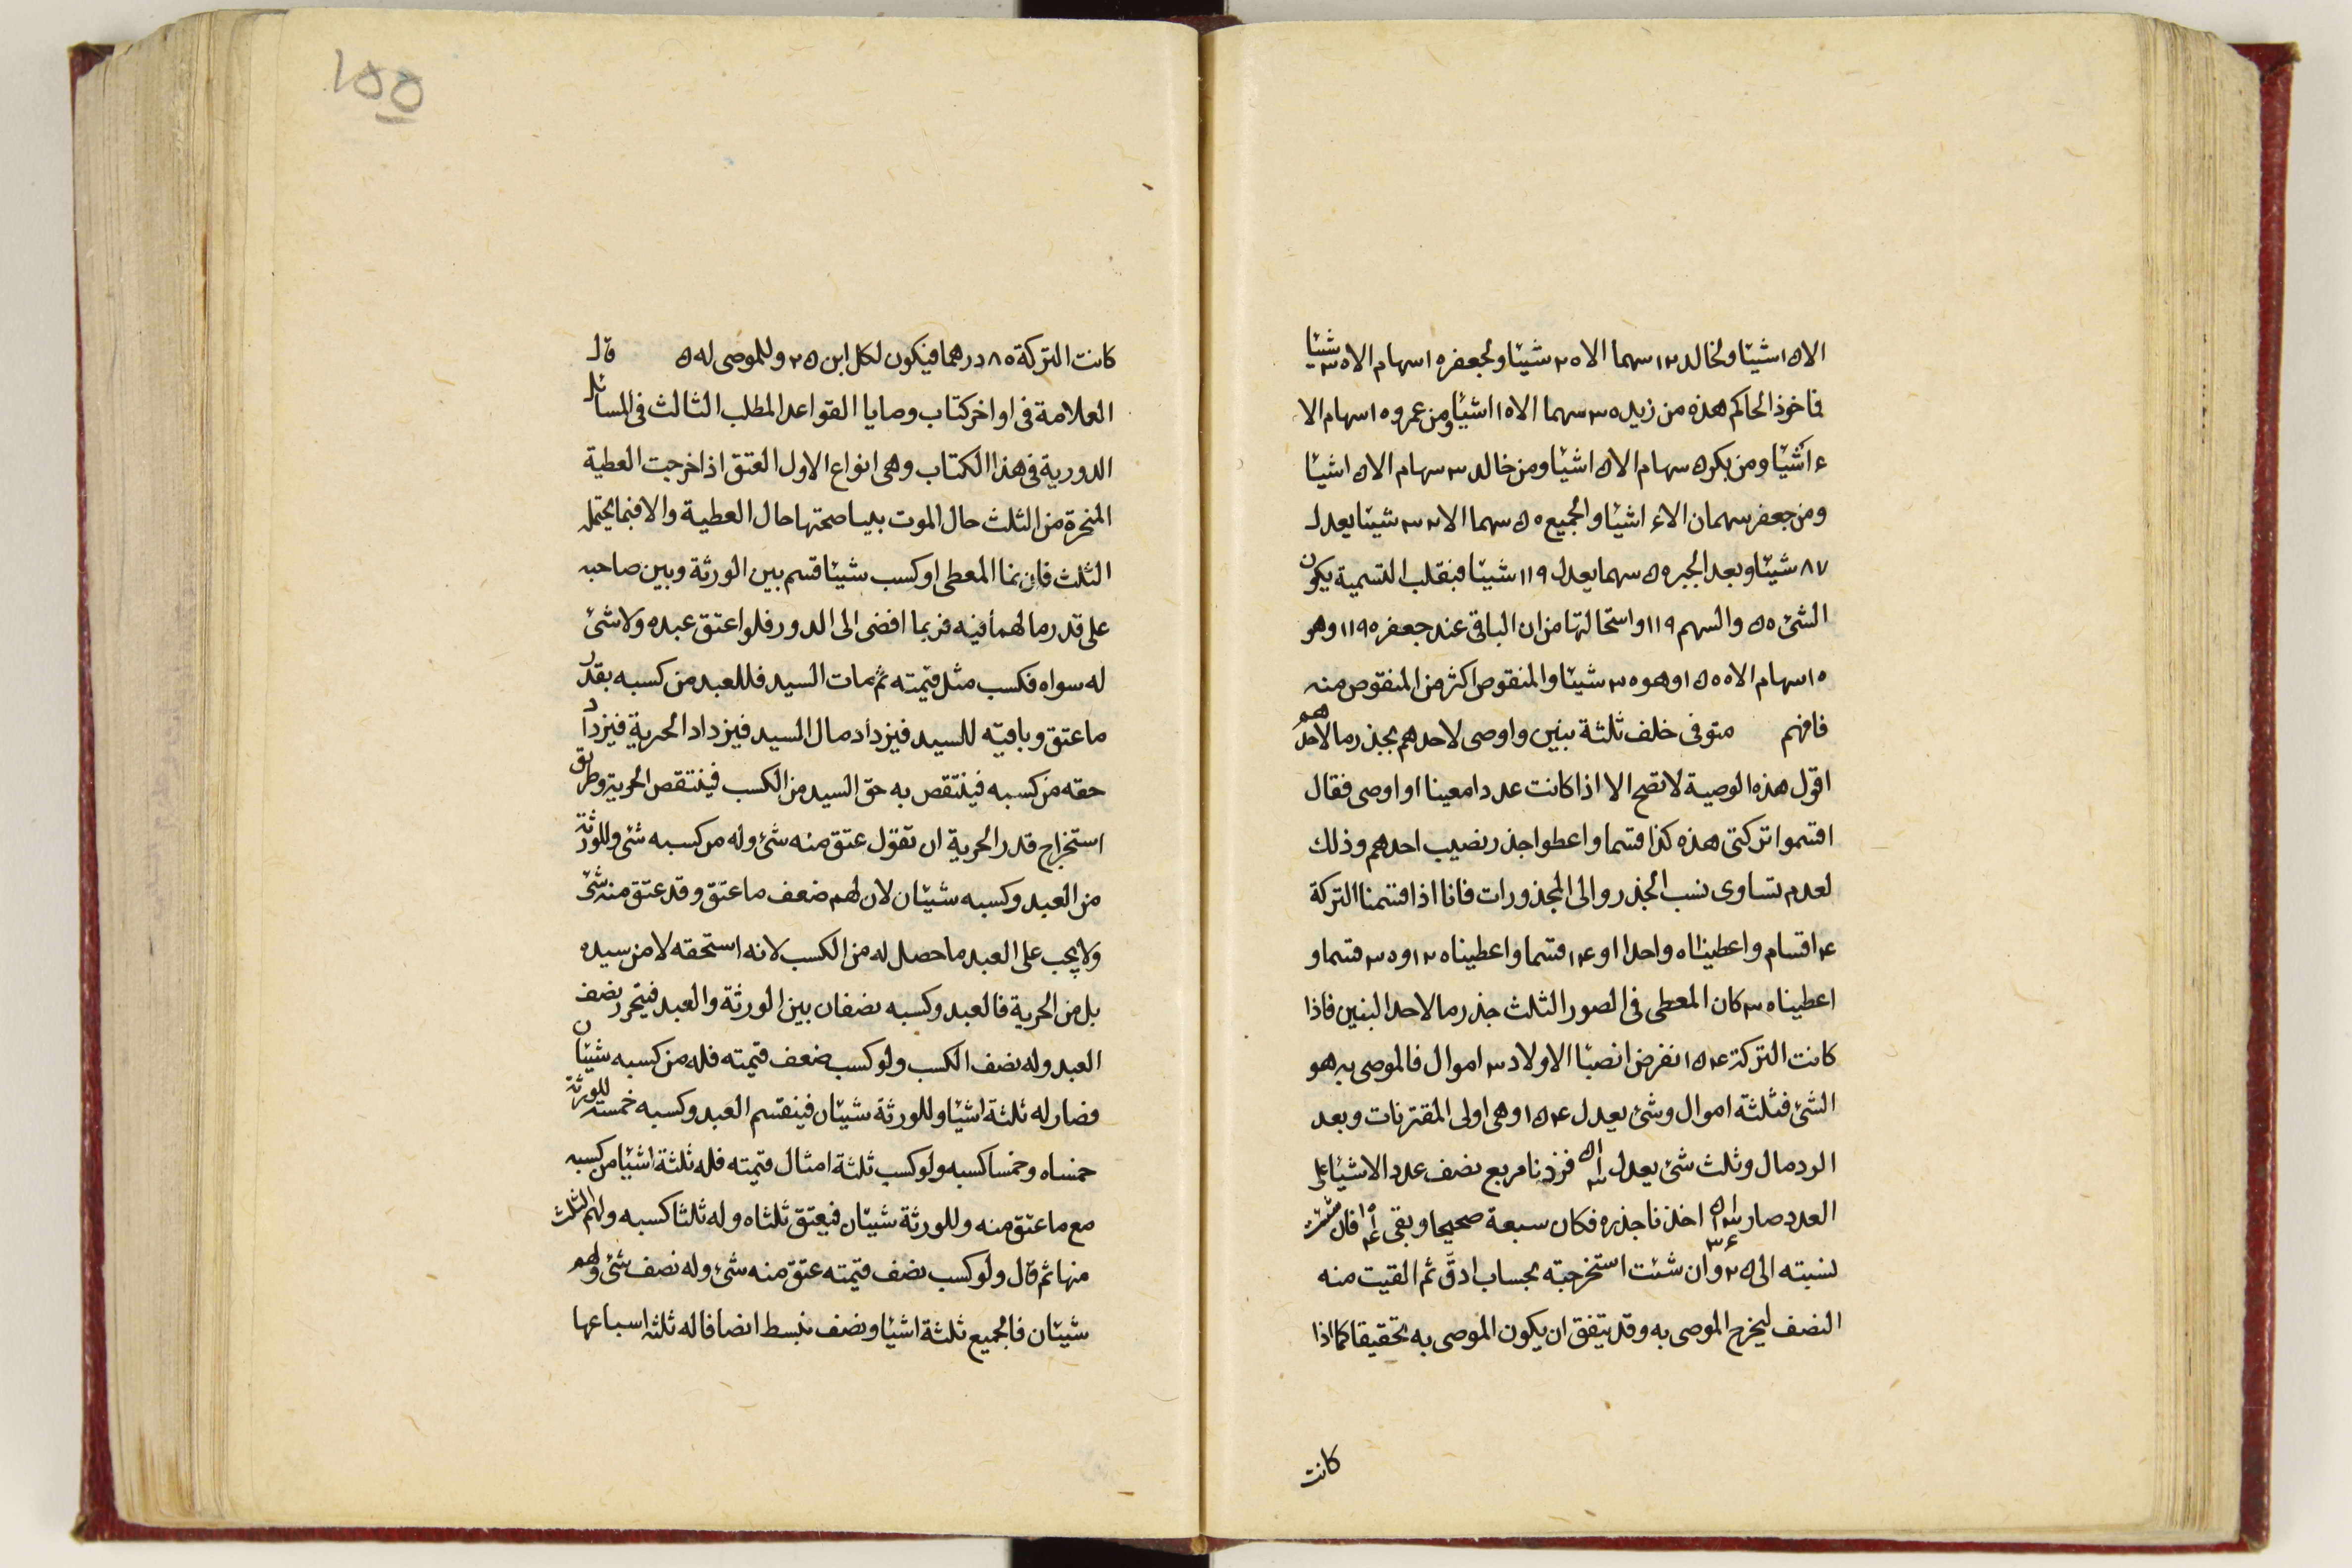 الا ١٥ شيئا ولخالد ١٢ سهما الا ٢٠ شيئا ولجعفر ١٠ سهام الا ٣٠ شيئا
فاخوذ الحاكم هذه من زيد ٣٠ سهما الا ١٠ اشيا ومن عمرو ١٠ اسهام الا
٤ اشيا ومن بكر ٥ سهام الا ٥ اشيا ومن خالد ٣ سهام الا ٥ اشيا
ومن جعفر سهمان الا ٤ اشيا والجميع ٥٠ سهما الا ٣٢ شيئا يعدل
٨٧ شيئا وبعد الجبر ٥٠ سهما يعدل ١١٩ شيئا فبقلب التسمية يكون
الشئ ٥٠ والسهم ١١٩ واستحالتها من ان الباقى عند جعفر ١١٩٠ وهو
١٠ سهام الا ١٥٠٠ وهو ٣٠ شيئا والمنقوص اكثر من المنقوص منه
فافهم متوفى خلف ثلثة بنين واوصى لاحدهم بجذر ما لاحدهم
اقول هذه الوصية لا تصح الا اذا كانت عددا معينا او اوصى فقال
اقتسموا تركتى هذه كذا قسما واعطوا جذر نصيب احدهم وذلك
لعدم تساوى نسب الجذر والى المجذورات فانا اذا قسمنا التركة
٤ اقسام واعطيناه واحدا او ١٤ قسما واعطيناه ٢ او ٣٠ قسما و
اعطيناه ٣ كان المعطى فى الصور الثلث جذر ما لاحد البنين فاذا
كانت التركة ١٥٤ نفرض انصبا الاولاد ٣ اموال فالموصى به هو
الشئ فثلثة اموال وشئ يعدل ١٥٤ وهى اولى المقترنات وبعد
الرد مال وثلث شئ يعدل ٥١ ١/٣ فزدنا مربع نصف عدد الاشيا على
العدد صار ٥١ ١٣/٣٦ اخذنا جذره فكان سبعة صحيحا وبقى فان شئت
نسبته الى ٢٥ وان شئت استخرجته بحساب ادق ثم القيت منه
النصف ليخرج الموصى به وقد يتفق ان يكون الموصى به تحقيقا كما اذا
كانت
١٥٥
كانت التركة ٨٠ درهما فيكون لكل ابن ٢٥ وللموصى له ٥ قال
العلامة فى اواخر كتاب وصايا القواعد المطلب الثالث فى المسائل
الدورية فى هذا الكتاب وهى انواع الاول العتق اذا خرجت العطية
المنجزة من الثلث حال الموت صحتها حال العطية والا فبما يحتمله
الثلث فان نما المعطى او كسب شيئا قسم بين الورثة وبين صاحبه
على قدر ما لهما فيه فربما افضى الى الدور فلو اعتق عبده ولا شئ
له سواه فكسب مثل قيمته ثم مات السيد فللعبد من كسبه بقدر
ما عتق وباقيه للسيد فيزداد مال السيد فيزداد الحرية فيزداد
حقه من كسبه فينتقص به حق السيد من الكسب فينتقص الحرية وطريق
استخراج قدر الحرية ان تقول عتق منه شئ وله من كسبه شئ وللورثة
من العبد وكسبه شيئان لان لهم ضعف ما عتق وقد عتق منه شئ
ولا يجب على العبد ما حصل له من الكسب لانه استحقه لا من سيده
بل من الحرية فالعبد وكسبه نصفان بين الورثة والعبد فيتحرر نصف
العبد وله نصف الكسب ولو كسب ضعف قيمته فله من كسبه شيئان
فصار له ثلثة اشيا وللورثة شيئان فينقسم العبد وكسبه خمسة للورثة
خمساه وخمسا كسبه ولو كسب ثلثة امثال قيمته فله ثلثة اشيا من كسبه
مع ما عتق منه وللورثة شيئان فيعتق ثلثاه وله ثلثا كسبه ولهم الثلث
منها ثم قال ولو كسب نصف قيمته عتق منه شئ وله نصف شئ ولهم
شيئان فالجميع ثلثة اشيا ونصف نبسط انصافا له ثلثه اسباعها